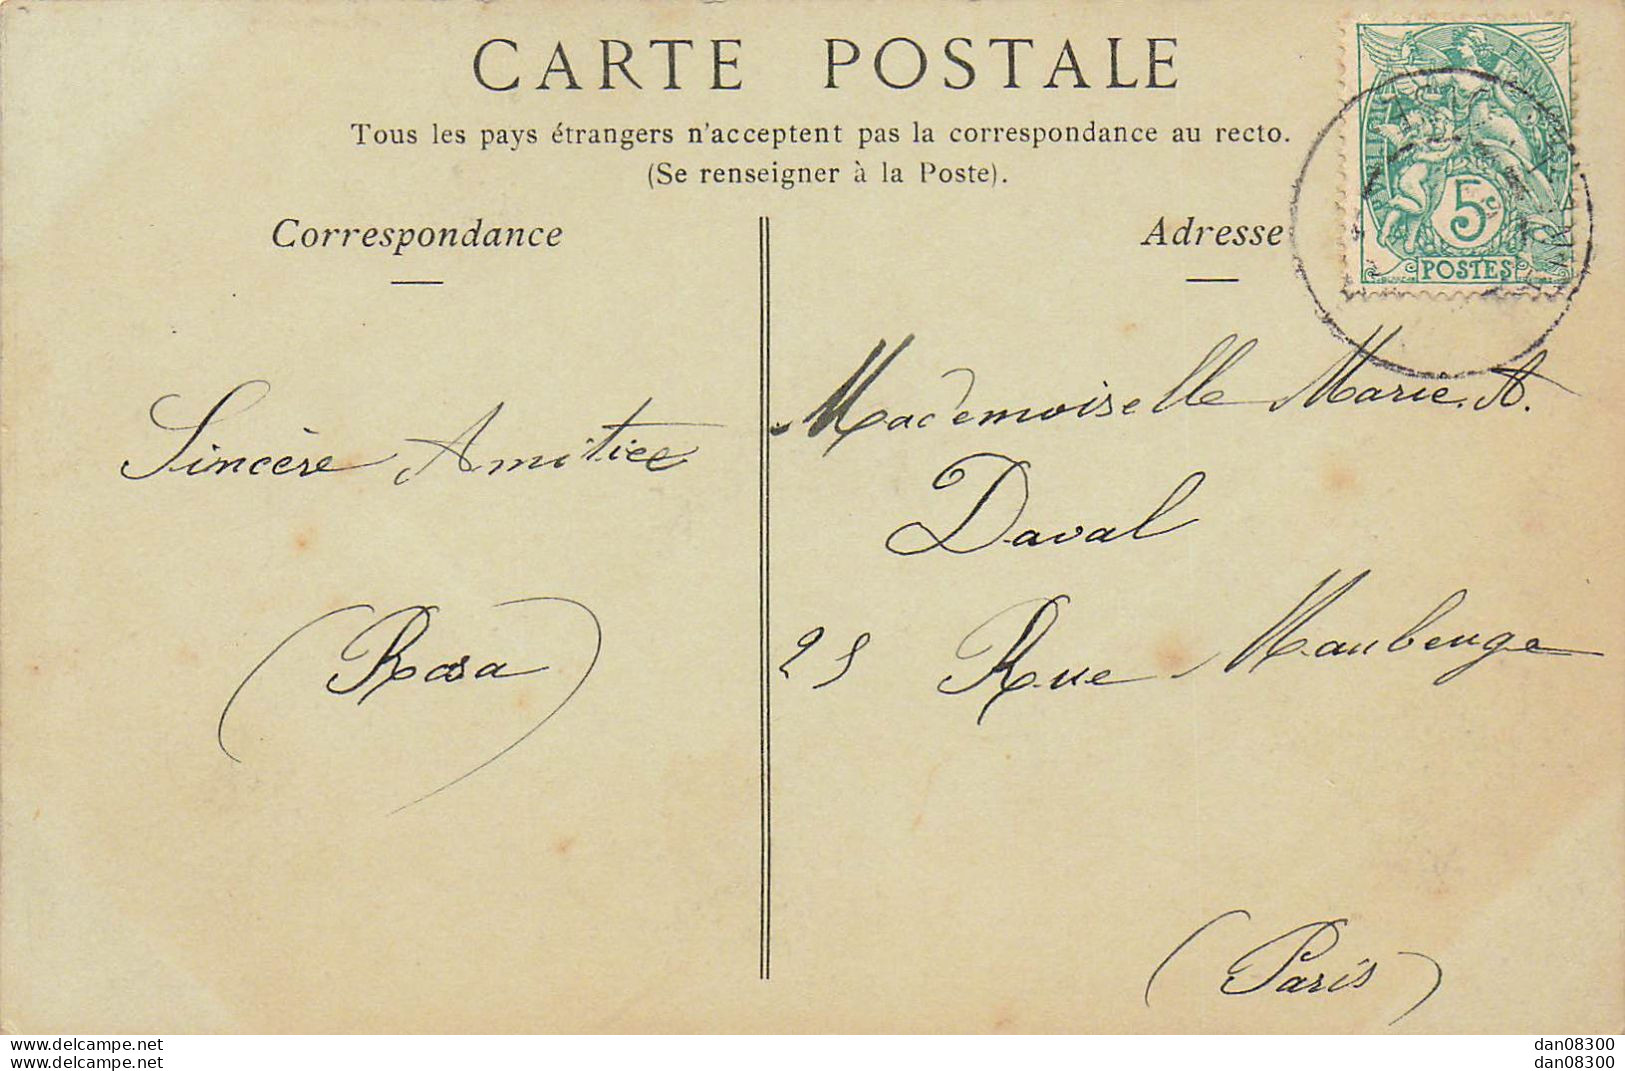 CARTE POSTALE
Tous les pays étrangers n'acceptent pas la correspondance au recto.
(Se renseigner à la Poste).
Correspondance
Adresse
FRANÇAISE
5c
POSTES
Sincère Amitiee
(Rosa)
Mademoiselle Marie. A.
Daval
25 Rue Maubeuge
(Paris)
www.delcampe.net
dan08300
www.delcampe.net
dan08300